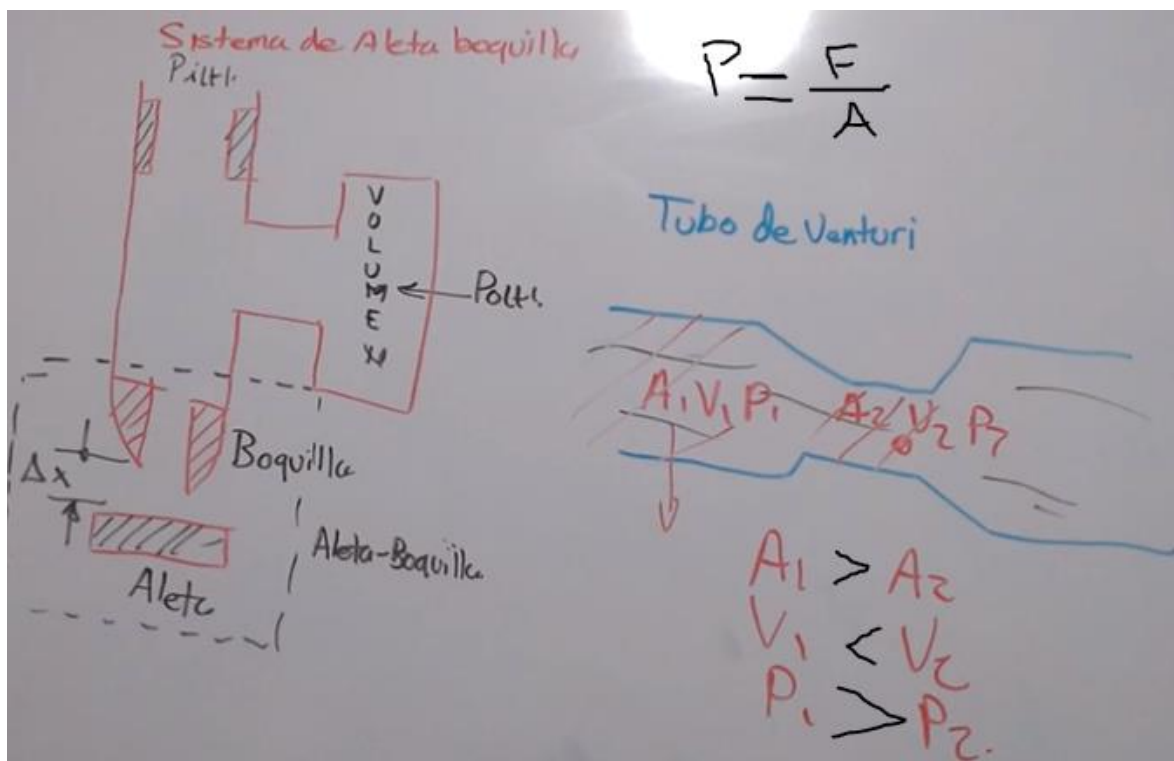 Sistema de Aleta boquilla
Pi(t).
VOLUMEN
Po(t).
Boquilla
Δx
Aleta
Aleta-Boquilla
P = F / A
Tubo de Venturi
A₁ V₁ P₁
A₂ V₂ P₂
A₁ > A₂
V₁ < V₂
P₁ > P₂.